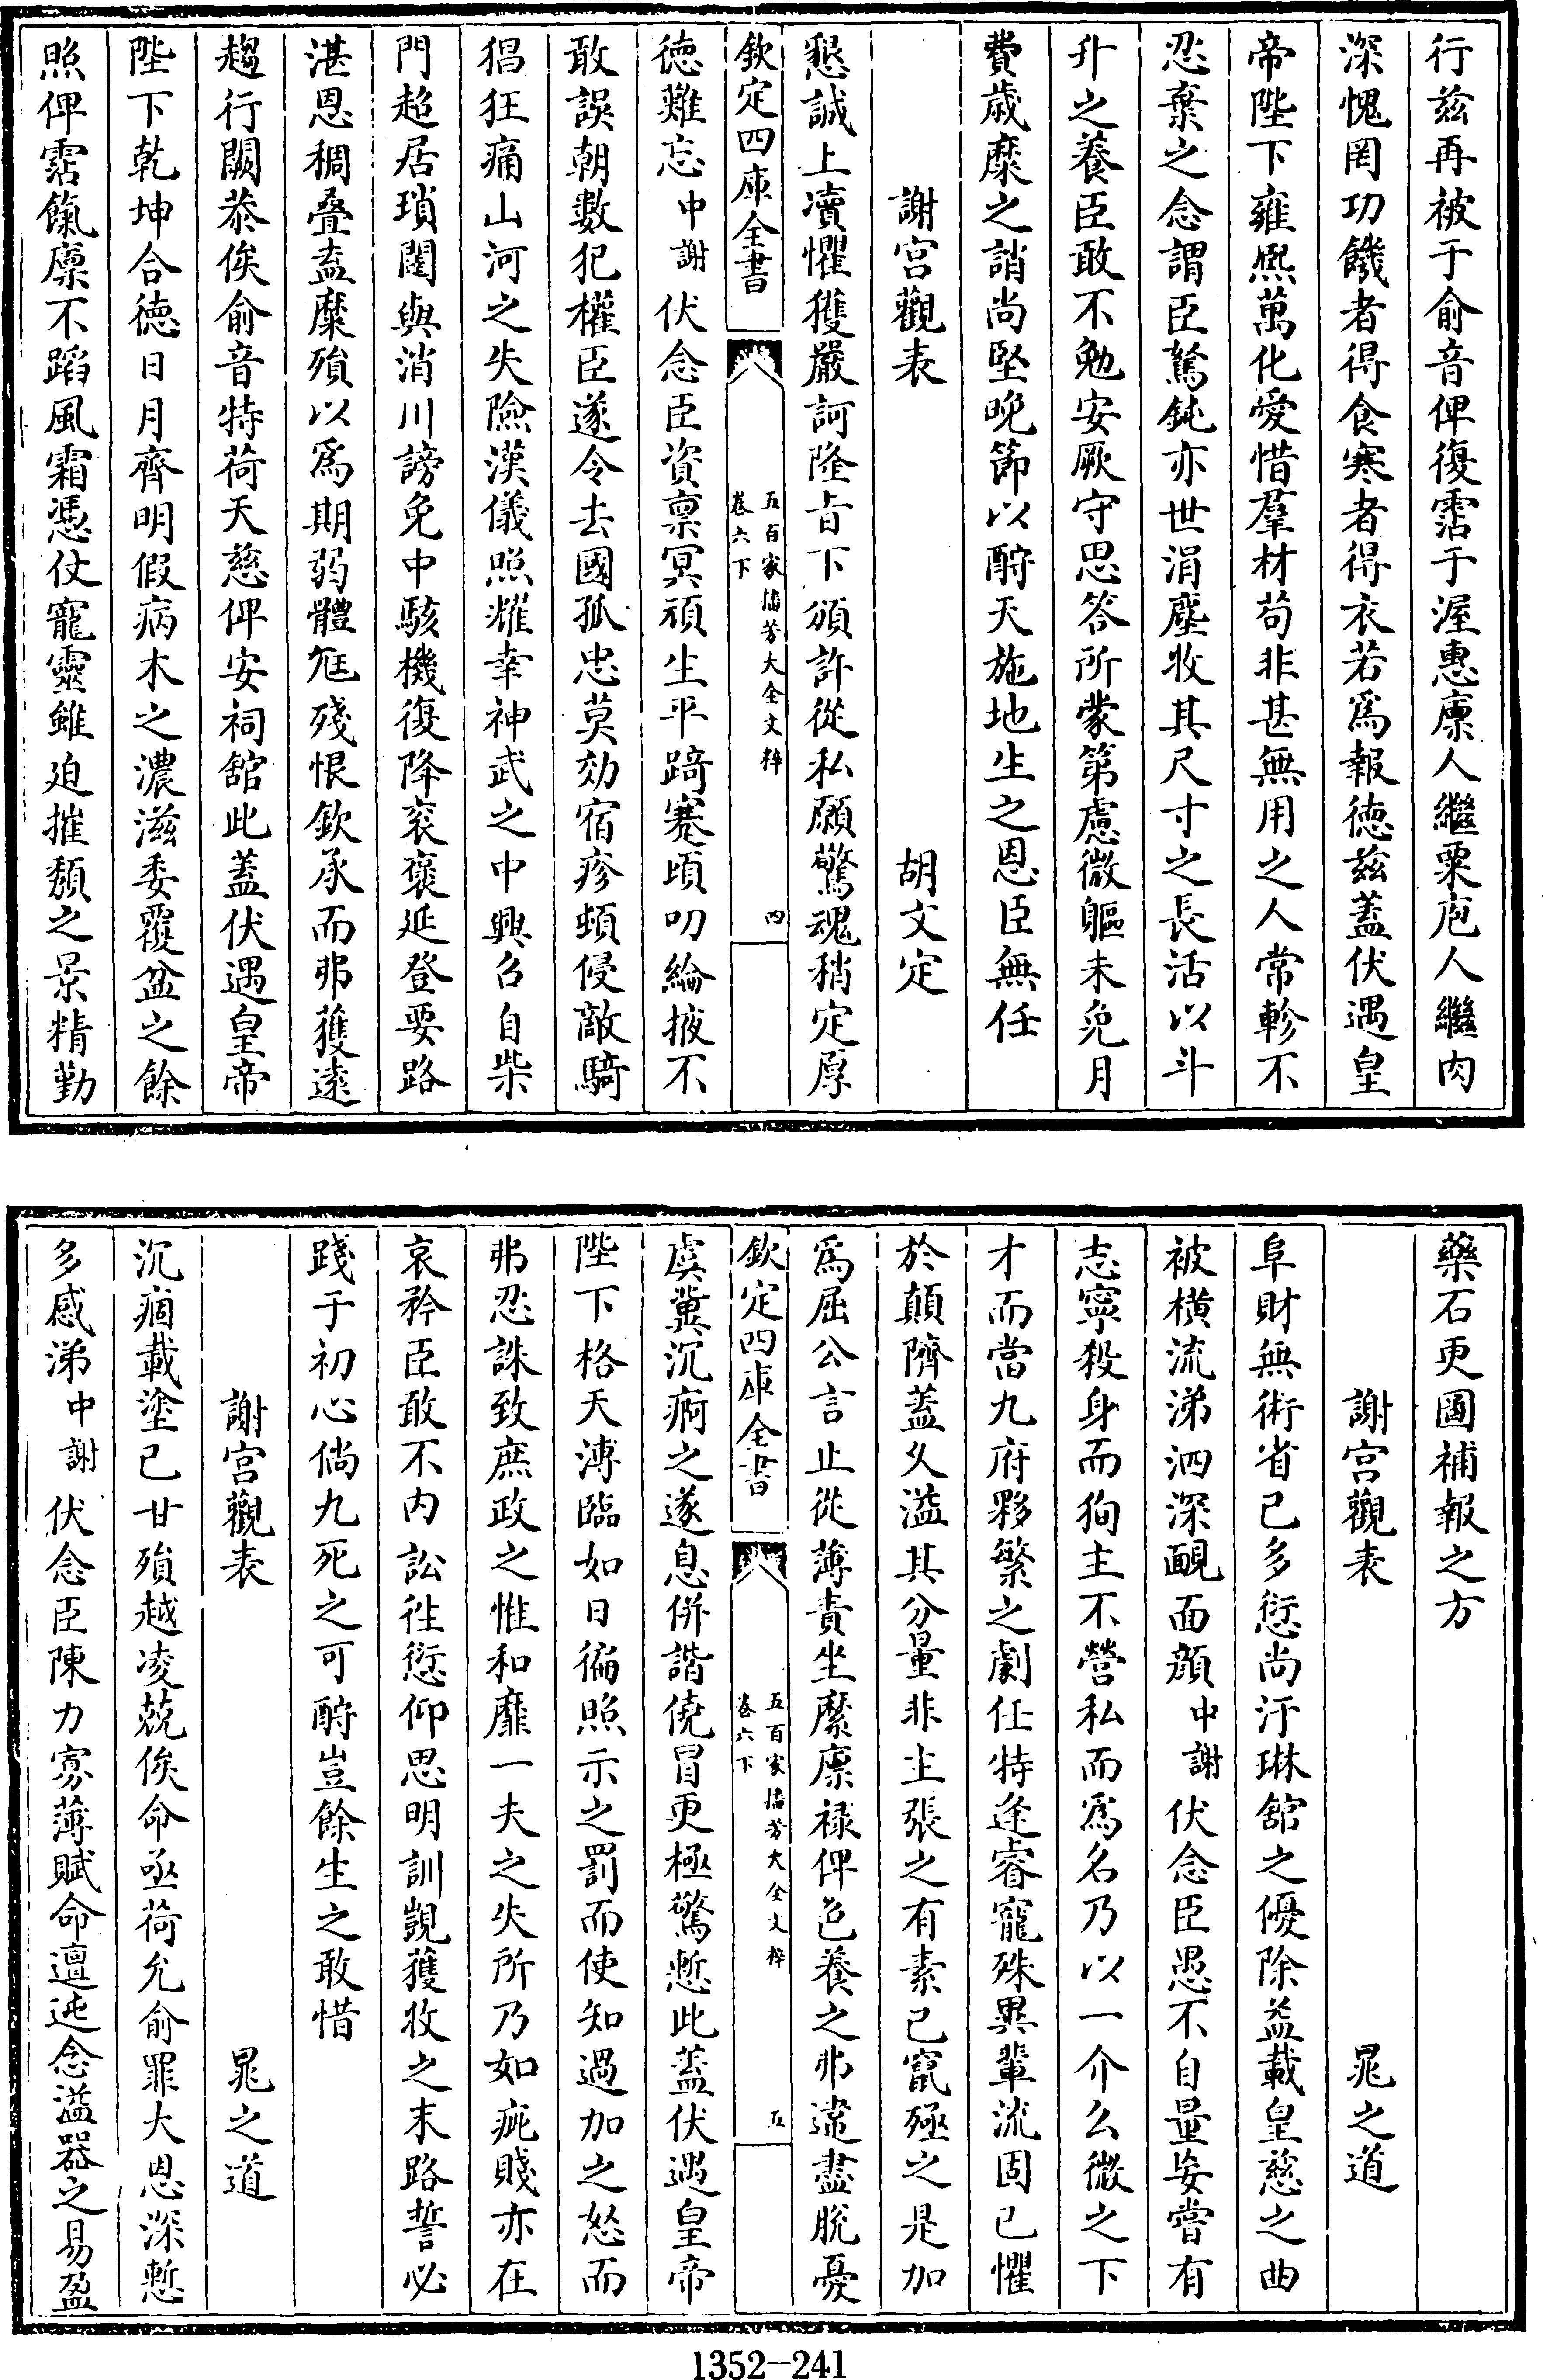 行兹再被于俞音俾復霑于渥惠廪人繼粟庖人繼肉
深愧罔功饑者得食寒者得衣若爲報徳兹蓋伏遇皇
帝陛下雍熙萬化愛惜羣材苟非甚無用之人常軫不
忍棄之念謂臣駑鈍亦世涓塵收其尺寸之長活以斗
升之養臣敢不勉安厥守思答所蒙第慮微軀未免月
費歳糜之誚尚堅晩節以酧天施地生之恩臣無任
謝宫觀表 胡文定
懇誠上瀆懼獲嚴訶隆㫖下頒許從私願驚魂稍定厚
欽定四庫全書
五百家播芳大全文粹
卷六下
四
徳難忘中謝伏念臣資禀冥頑生平踦蹇頃叨綸掖不
敢誤朝數犯權臣遂令去國孤忠莫効宿疹頻侵敵騎
猖狂痛山河之失險漢儀照耀幸神武之中興召自柴
門超居瑣闥與消川謗免中駭機復降衮褒延登要路
湛恩稠疊盍糜殞以爲期弱體尫殘恨欽承而弗獲逺
趨行闕恭俟俞音特荷天慈俾安祠舘此蓋伏遇皇帝
陛下乾坤合徳日月齊明假病木之濃滋委覆盆之餘
照俾霑餼廪不蹈風霜憑仗寵靈雖迫摧頽之景精勤
藥石更圖補報之方
謝宫觀表 晁之道
阜財無術省已多愆尚汙琳舘之優除益載皇慈之曲
被横流涕泗深靦面顔中謝伏念臣愚不自量妄嘗有
志寧殺身而狥主不營私而爲名乃以一介么微之下
才而當九府夥繁之劇任特途睿寵殊異輩流固已懼
於顛隮蓋久溢其分量非主張之有素已竄殛之是加
爲屈公言止從薄責坐縻廪禄俾色養之弗違盡脱憂
欽定四庫全書
五百家播芳大全文粹
卷六下
五
虞冀沉痾之遂息併諧僥冒更極驚慙此蓋伏遇皇帝
陛下格天溥臨如日徧照示之罰而使知過加之怒而
弗忍誅致庶政之惟和靡一夫之失所乃如疵賤亦在
哀矜臣敢不内訟徃愆仰思明訓覬獲收之末路誓必
踐于初心倘九死之可酧豈餘生之敢惜
謝宫觀表 晁之道
沉痼載塗已甘殞越凌兢俟命亟荷允俞罪大恩深慙
多感涕中謝伏念臣陳力寡薄賦命邅迍念溢器之易盈
1352-241